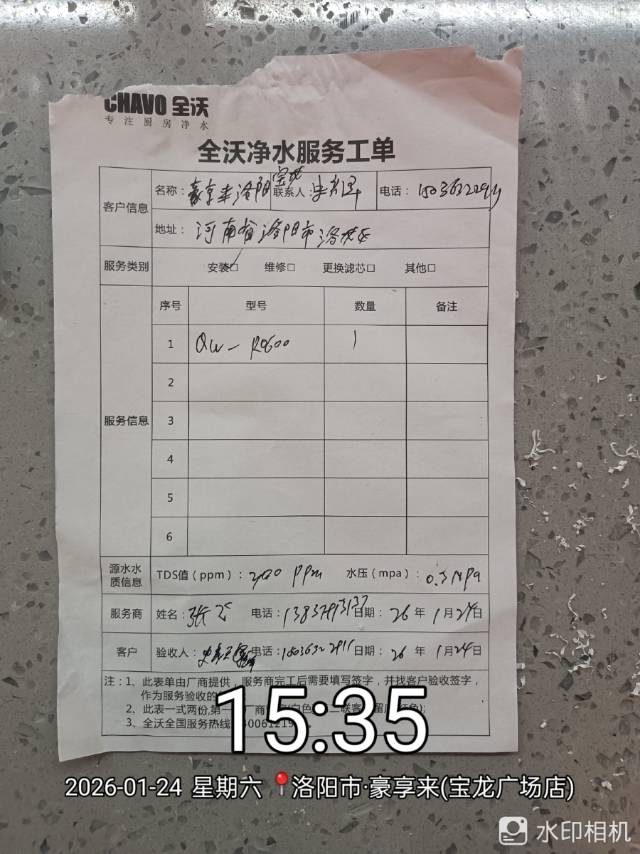 CHAVO 全沃
专注厨房净水
全沃净水服务工单
客户信息 名称：豪享来洛阳宝龙 联系人： 电话：
地址：河南省洛阳市洛龙区
服务类别 安装□ 维修□ 更换滤芯□ 其他□
服务信息 序号 型号 数量 备注
1 QW-R0600 1
2
3
4
5
6
源水水质信息 TDS值（ppm）：200 ppm 水压（mpa）：0.3 Mpa
服务商 姓名：张 电话： 日期：26 年 1月24日
客户 验收人： 电话： 日期：26 年 1月24日
注：1、此表单由厂商提供，服务商完工后需要填写签字，并找客户验收签字，
作为服务验收的
2、此表一式两份,第一
3、全沃全国服务热线
15:35
2026-01-24 星期六 洛阳市·豪享来(宝龙广场店)
水印相机